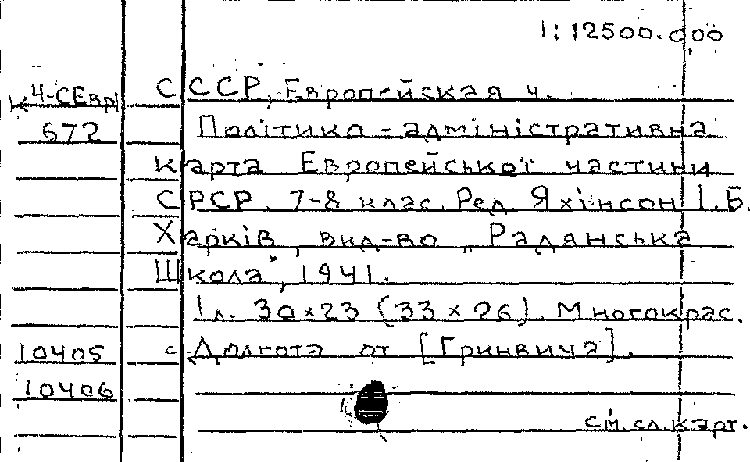 1:12500.000
К 4-СЕвр СССР, Европейская ч.
672 Політико-адміністративна
карта Европейської частини
СРСР. 7-8 клас. Ред. Яхінсон І.Б.
Харків, вид-во „Радянська
Школа", 1941.
1л. 30×23 (33×26). Многокрас.
10405 с Долгота от [Гринвича].
10406
см. сл. карт.